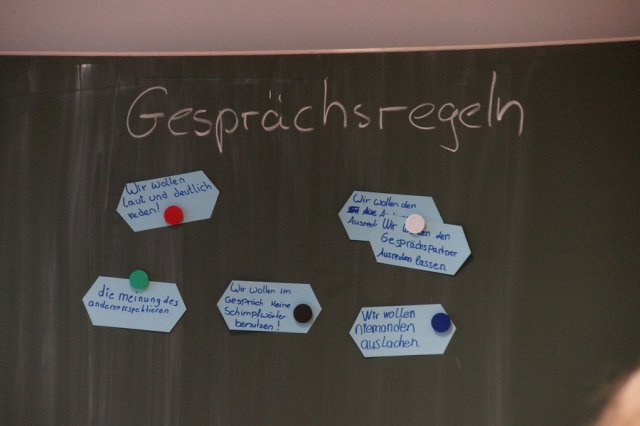 Gesprächsregeln
Wir wollen
laut und deutlich
reden!
Wir wollen den
Ausred
Wir den
Gesprächspartner
Ausreden lassen.
die meinung des
anderen respektieren.
Wir wollen im
Gespräch keine
Schimpfwörter
benutzen!
Wir wollen
niemanden
auslachen.